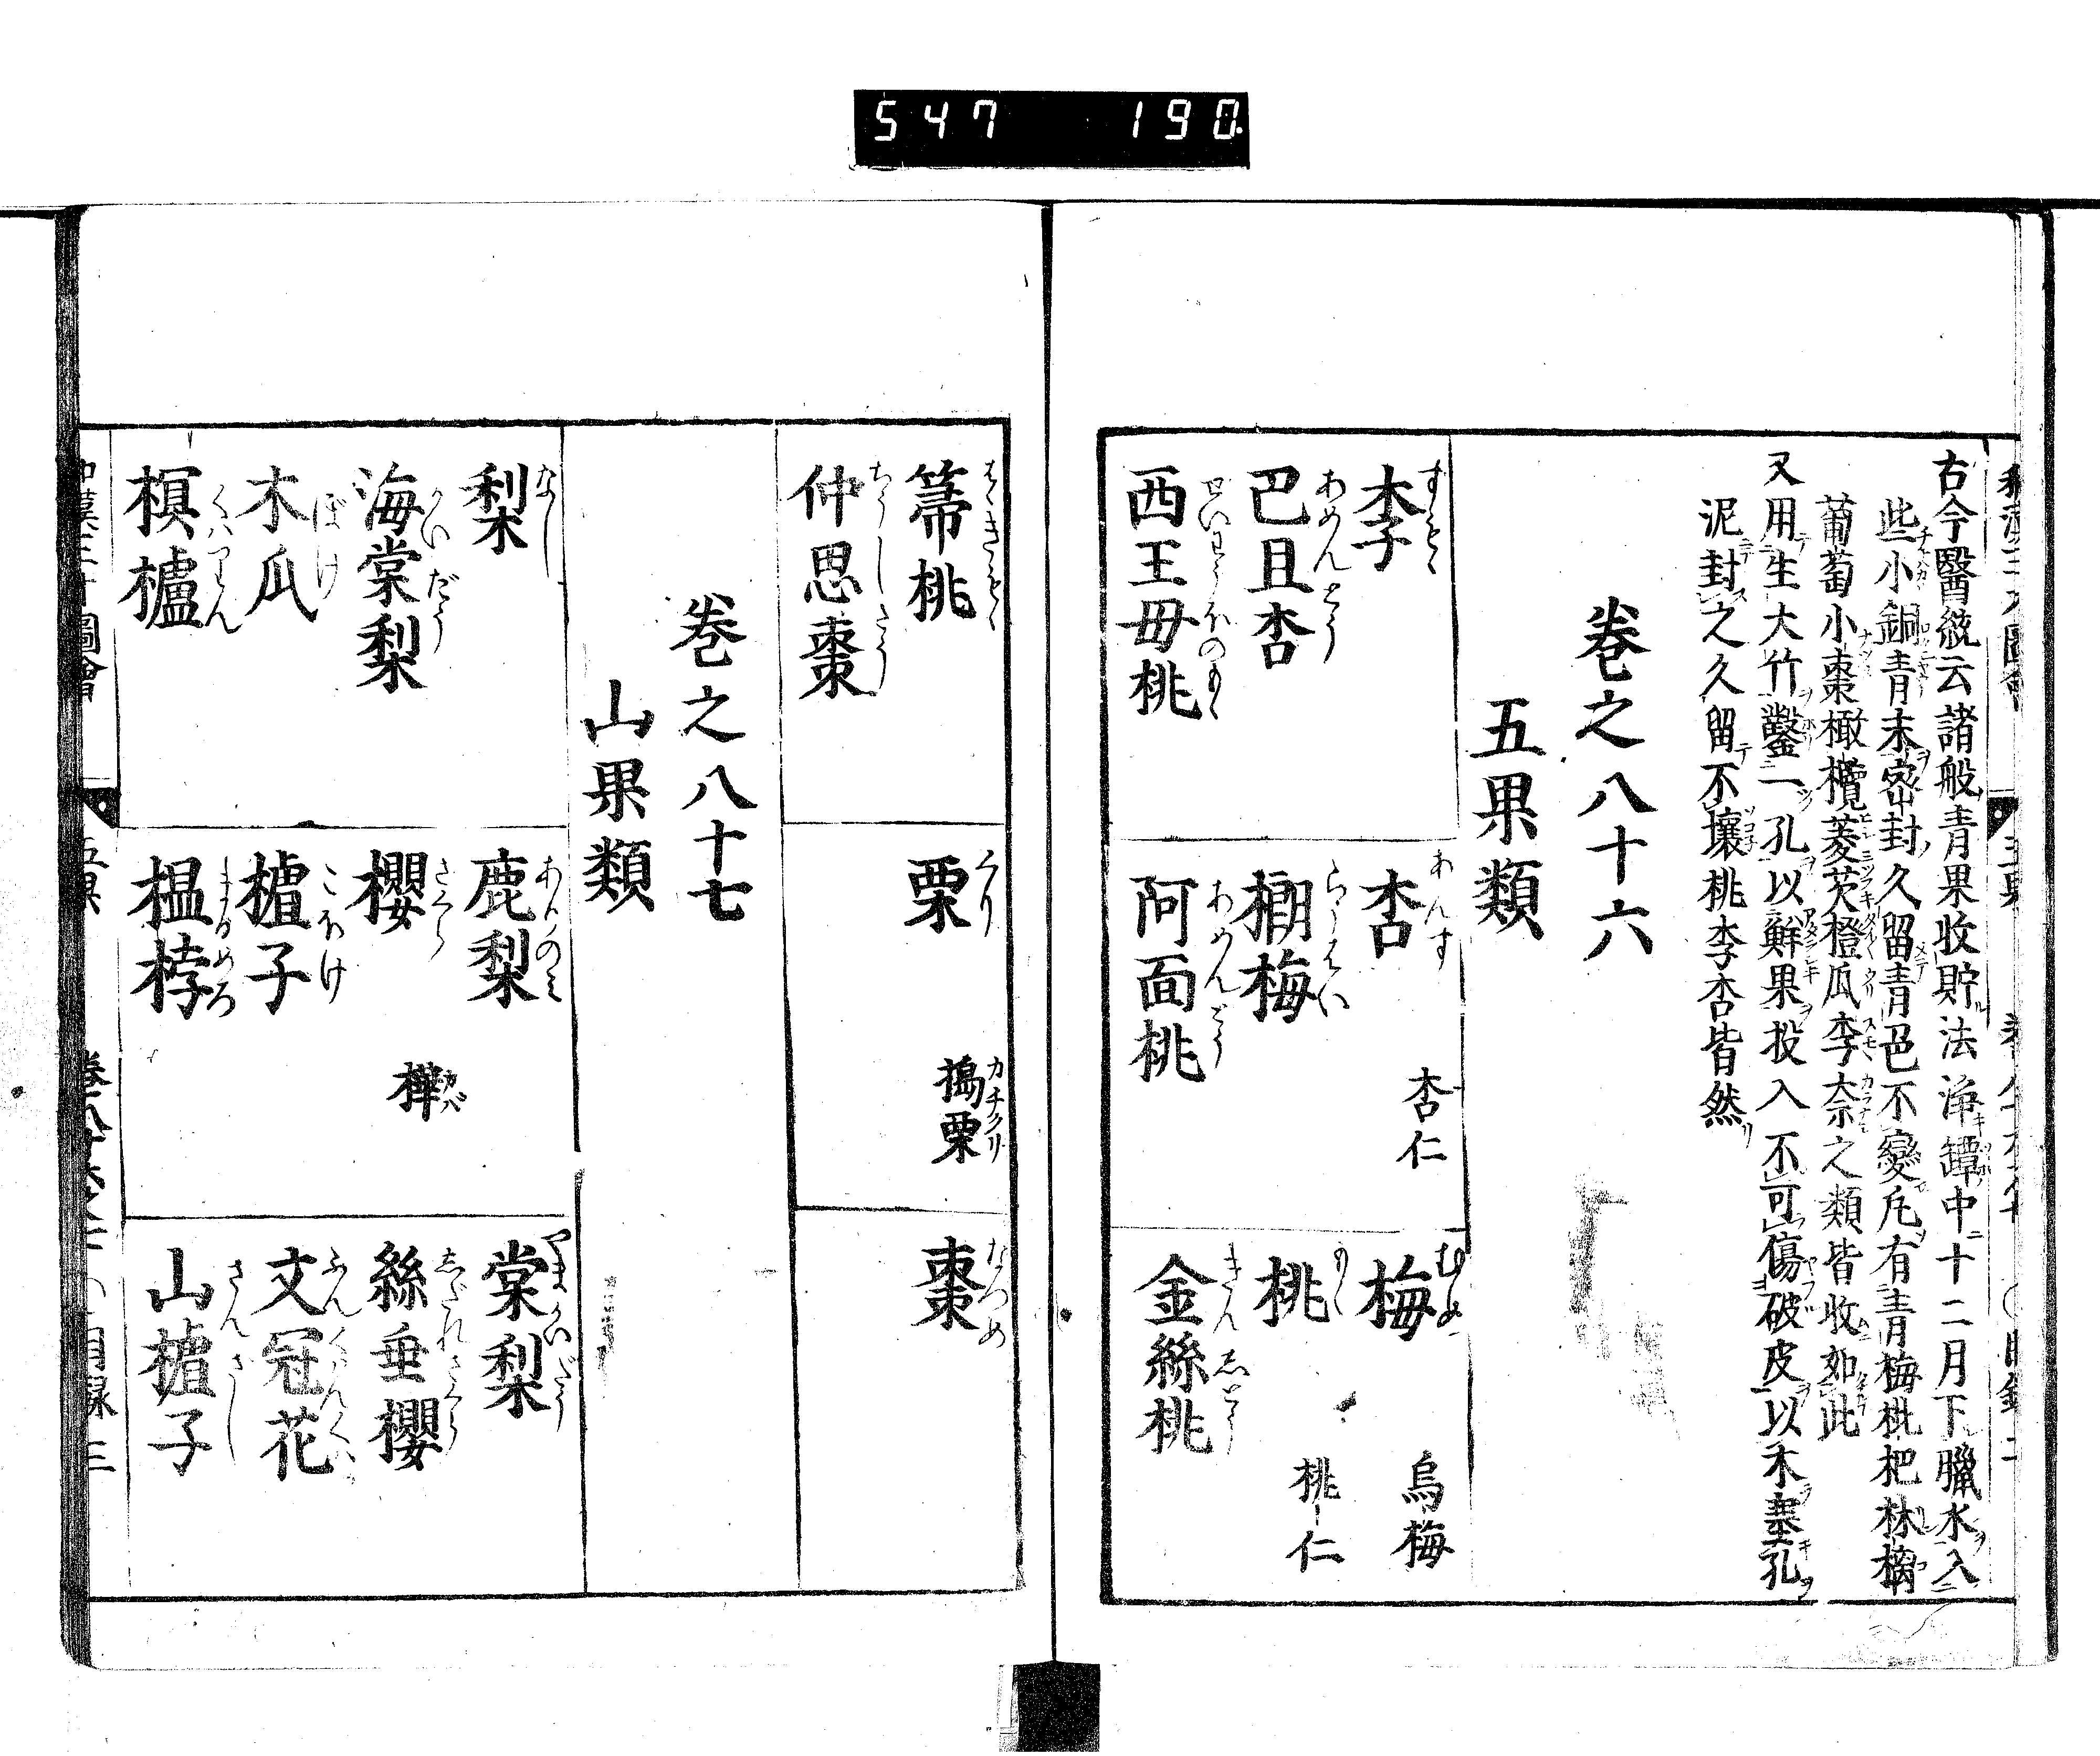 547 190
古今醫統云諸般青果收貯法淨罈中十二月下臘水入
些小銅青末密封久留青色不變凡有青梅枇杷林檎
葡萄小棗橄欖菱芡橙瓜李柰之類皆收如此
又用生大竹鑿一孔以鮮果投入不可傷破皮以木塞孔
泥封之久留不壞桃李杏皆然
卷之八十六
五果類
李 すもゝ
杏 あんす 杏仁
梅 むめ 烏梅
巴且杏 あめんとう
榔梅 らうばい
桃 もゝ 桃仁
西王毋桃 せいわうぼのもゝ
阿面桃 あめんどう
金絲桃 きんしとう
箒桃 はゝきもゝ
栗 くり 搗栗 カチクリ
棗 なつめ
仲思棗 ちうしさう
卷之八十七
山果類
梨 なし
鹿梨
棠梨
海棠梨 かいだう
櫻 さくら 樺 カバ
絲垂櫻 しだれさくら
木瓜 ぼけ
樝子 こぼけ
文冠花 ぶんくはんくは
榠樝 くはりん
榲桲 まるめろ
山樝子 さんざし
卷八十六之七 目録 三